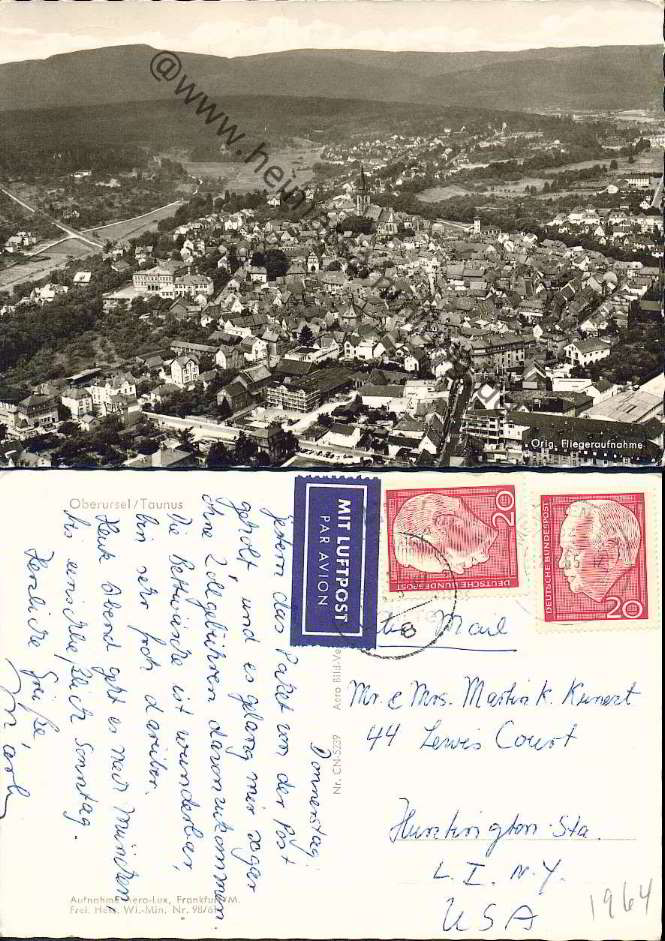 @www.hein
Orig. Fliegeraufnahme
Oberursel/Taunus
Donnerstag
gestern das Paket von der Post
geholt und es gelang mir sogar
ohne Zollgebühren davonzukommen.
Die Bettwäsche ist wunderbar,
bin sehr froh darüber.
Heute Abend geht es nach München,
bis einschließlich Sonntag.
Herzliche Grüße,
Aufnahme Aero-Lux, Frankfurt/M.
Frei. Hess. Wi.-Min. Nr. 98/61
Aero-Bild-Ver
Nr. CN-5239
MIT LUFTPOST
PAR AVION
DEUTSCHE BUNDESPOST
20
DEUTSCHE BUNDESPOST
20
Mail
Mr. & Mrs. Martin K. Kunert
44 Lewis Court
Huntington-Sta.
L. I. N.Y.
USA
1964